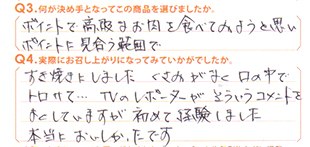 Q3.何が決め手となってこの商品を選びましたか。
ポイントで高級なお肉を食べてみようと思い
ポイントに見合う範囲で
Q4.実際にお召し上がりになってみていかがでしたか。
すき焼きにしました くさみがなく 口の中で
トロけて… TVのレポーターが そういうコメントを
よくしていますが 初めて経験しました
本当においしかったです